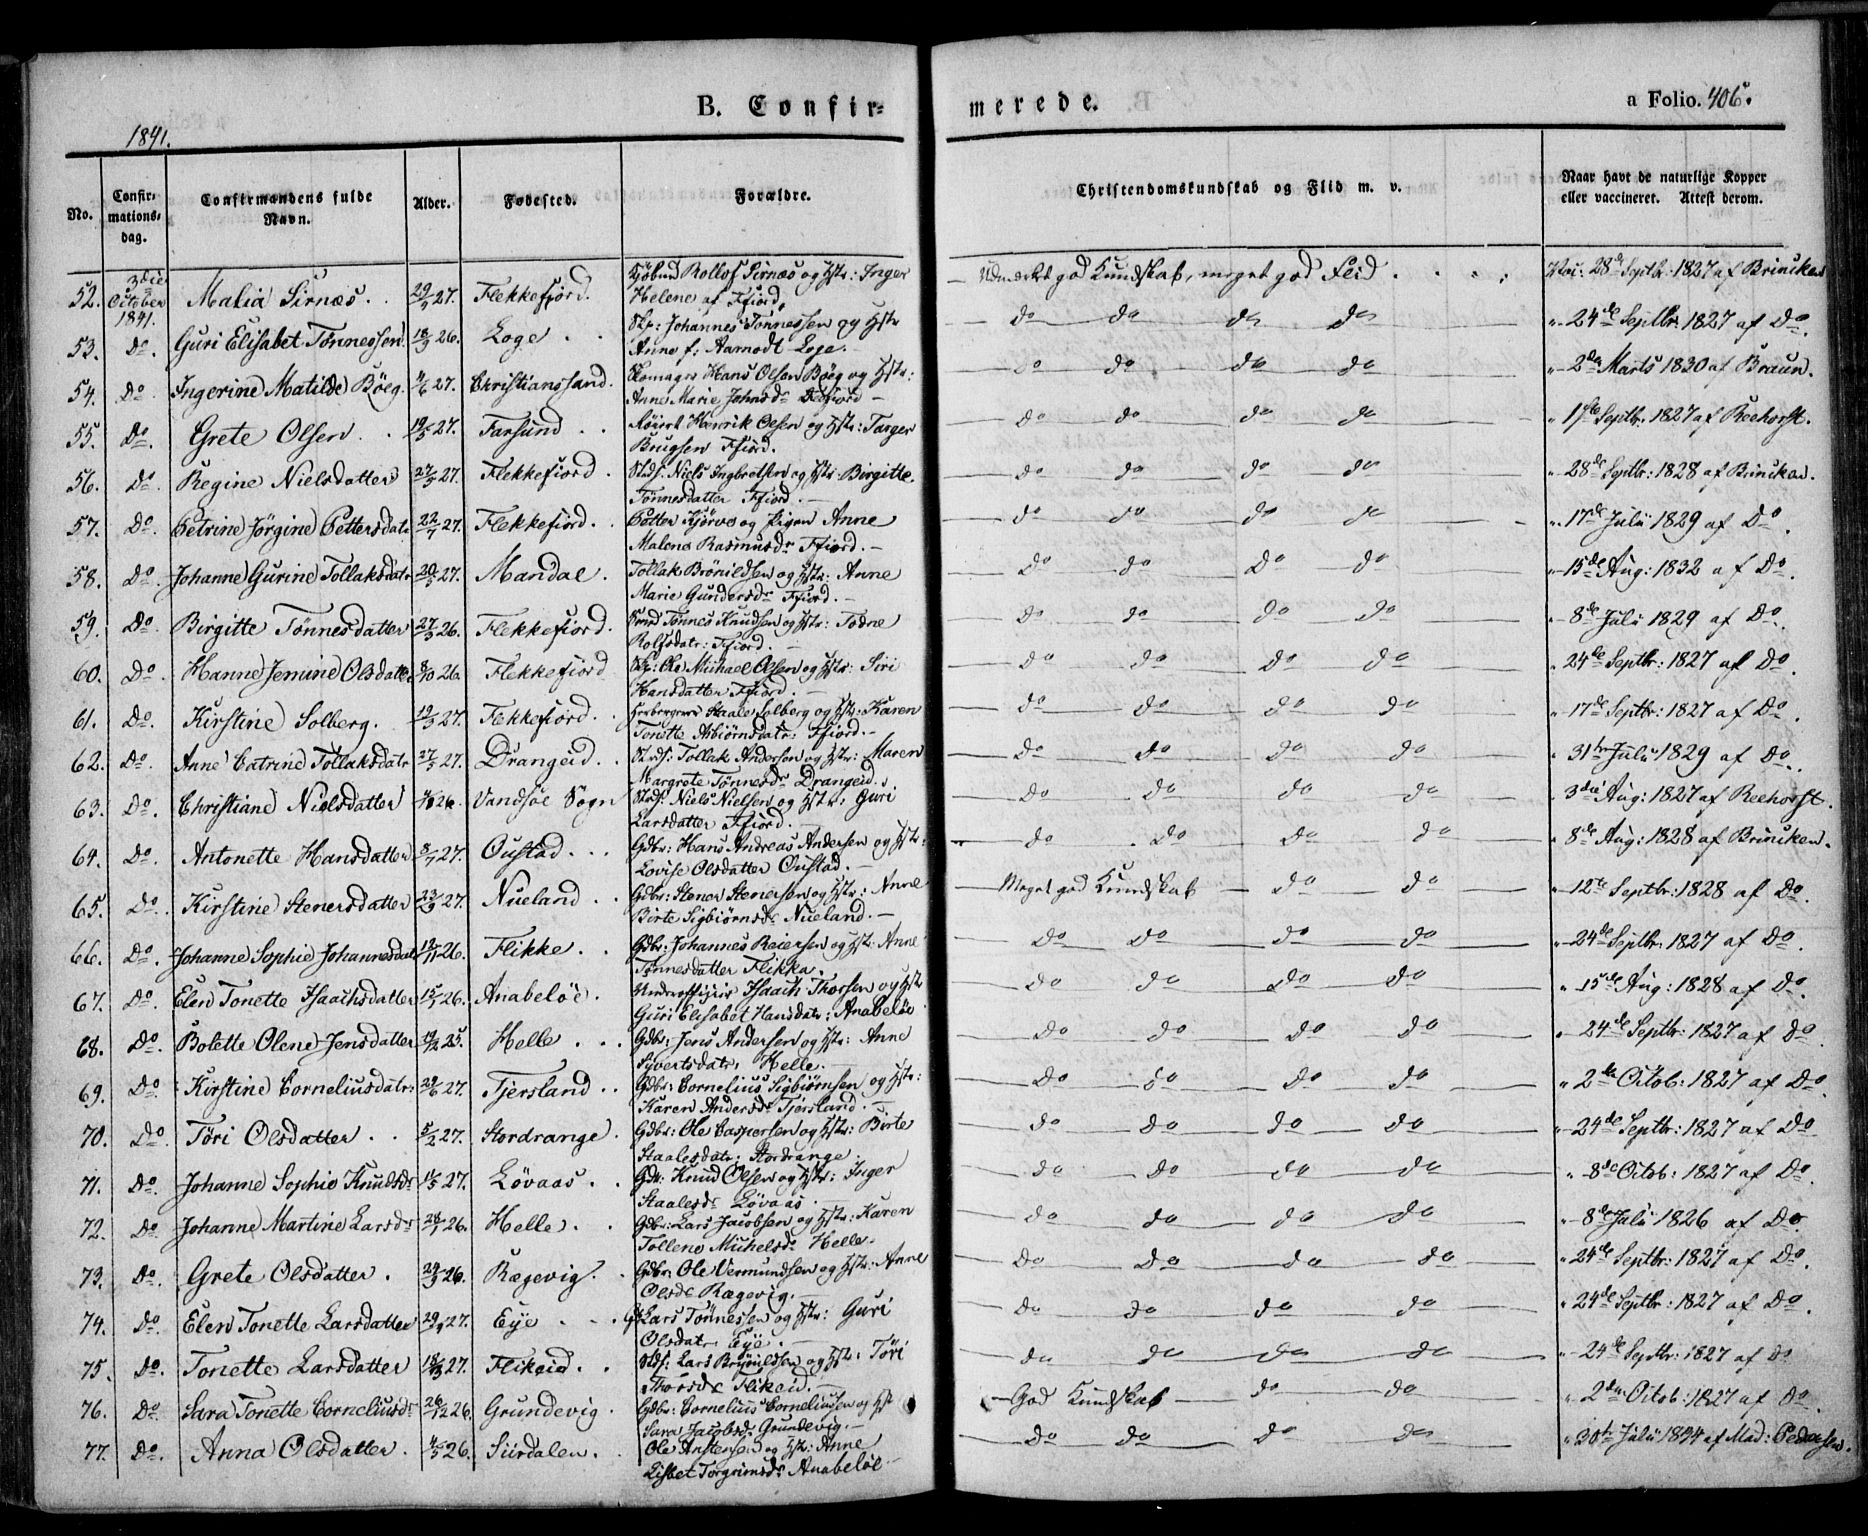 B. Confir=
merede.
a Folio. 406.
1841.
No.
Confir-
mations-
dag.
Confirmandens fulde
Navn.
Alder.
Fødested.
Forældre.
Christendomskundskab og Flid m. v.
Naar havt de naturlige Kopper
eller vaccineret. Attest derom.
52. 3die October 1841. Malia Sirnæs. Flekkefjord. Rollof Sirnæs og Hstr: Inger
Helene af Ffiord. Udmærket god Kundskab, meget god Flid. 28de Septbr: 1827 af Brincken
53. Do. Guri Elisabet Tønnessen 18/3 26. Loge Skp: Johannes Tønnessen og Hstr
Anne f: Aarnodt Loge. do do do do 24de Septbr: 1827 af Do.
54. Do Ingerine Matilde Bøeg 27. Christianssand. Skomager Hans Olsen Bøeg og Hstr:
Anne Marie Johnsdr do do do do 2den Marts 1830 af Braun.
55. Do. Grete Olsen 27. Farsund Henrik Olsen og Hstr: Targer
Brugsen Ffiord. do do do do 17de Septbr: 1827 af Reehorst.
56. Do Regine Nielsdatter 27. Flekkefiord Strds: Niels Ingbretsen og Hstr: Birgitte
Tønnesdatter Ffiord. do do do do 28de Septbr: 1828 af Brincken.
57. Do. Petrine Jørgine Pettersdatr 22/7 27. Flekkefiord. Petter Kjørvo og Pigen Anne
Malene Rasmusdr Ffiord. do do do do 17de Julii 1829 af Do.
58. Do Johanne Gurine Tollaksdatr 20/3 27. Mandal. Tollak Brønildsen og Hstr: Anne
Marie Gundersdr Ffiord. do do do do 15de Aug: 1832 af Do.
59. Do Birgitte Tønnesdatter 27/3 26. Flekkefiord. Tønnes Knudsen og Hstr: Todne
Rolfsdatr: Ffiord. do do do do 8de Julii 1829 af Do.
60. Do. Hanne Jemine Olsdatter 8/10 26. Flekkefiord Skp: Ole Michael Olsen og Hstr: Siri
Hansdatter Ffiord. do do do do 24de Septbr: 1827 af Do
61. Do. Kirstine Solberg. 19/3 27. Flekkefiord. Staale Solberg og Hstr: Karen
Tonette Asbiørnsdatr: Ffiord. do do do do 17de Septbr: 1827 af Do.
62. Do. Anne Catrine Tollaksdatr 27. Drangeid. Strds: Tollak Andersen og Hstr: Maren
Margrete Tønnesdr Drangeid. do do do do 31te Julii 1829 af Do.
63. Do. Christiane Nielsdatter 26. Vandsøe Sogn Strds: Niels Nielsen og Hstr: Guri
Larsdatter Ffiord. do do do do 3die Aug: 1827 af Reehorst.
64. Do. Antonette Hansdatter 8/7 27. Oustad. Gdbr: Hans Andreas Andersen og Hstr:
Lovise Olsdatter Oustad. do do do do 8de Aug: 1828 af Brincken.
65. Do. Kirstine Stenersdatter 27. Nueland Gdbr: Stener Stenersen og Hstr: Anne
Birte Sigbiørnsdr Nueland. Meget god Kundskab do do 12te Septbr: 1828 af Do.
66. Do. Johanne Sophie Johannesdat 26. Flikke. Gdbr: Johannes Reiersen og Hstr: Anne
Tønnesdatter Flikka. do do do do 24de Septbr: 1827 af Do.
67. Do. Elen Tonette Isaachsdatter 26. Anabeløe. Underofficier Isaach Thorsen og Hstr
Guri Elisabet Hansdatr: Anabeløe do do do do 15de Aug: 1828 af Do.
68. Do. Bolette Olene Jensdatter 25. Helle. Gdbr: Jens Andersen og Hstr: Anne
Sivertsdatr: Helle. do do do do 24de Septbr: 1827 af Do.
69. Do. Kirstine Corneliusdatr: 27. Tjersland. Gdbr: Cornelius Sigbiørnsen og Hstr:
Karen Andersdr Tjersland. do do do do 2den Octob: 1827 af Do
70. Do. Tøri Olsdatter 27. Stordrange. Gdbr: Ole Caspersen og Hstr: Birte
Staalesdatr: Stordrange. do do do do 24de Septbr: 1827 af Do
71. Do. Johanne Sophie Knudsdr 27. Løvaas. Gdr: Knud Olsen og Hstr: Inger
Staalesdr Løvaas. do do do do 8de Octob: 1827 af Do.
72. Do Johanne Martine Larsdr 28/1 26. Helle. Gdbr: Lars Jacobsen og Hstr: Karen
Tollene Michelsdr Helle. do do do do 8de Julii 1826 af Do.
73. Do. Grete Olsdatter. 26. Rægevig. Gdbr: Ole Vermundsen og Hstr: Anne
Olsdr Rægevig. do do do do 24de Septbr: 1827 af Do.
74. Do. Elen Tonette Larsdatter 27. Eye Lars Tønnessen og Hstr: Guri
Olsdatr Eye. do do do do 24de Septbr: 1827 af Do.
75. Do. Tonette Larsdatter 27. Flikeid. Strds: Lars Brynildsen og Hstr: Tøri
Thorsdr Flikeid. do do do do 24de Septbr: 1827 af Do
76. Do. Sara Tonette Corneliusdr 26/12 26. Grundevig. Gdbr: Cornelius Corneliusen og Hst
Sara Jacobsdr Grundevig. God Kundskab do do 2den Octob: 1827 af Do.
77. Do. Anna Olsdatter. 26. Siirdalen. Ole Anstensen og Hstr: Anne
Lisbet Torgrimsdr Anabeløe do do do do 30te Julii 1834 af Mad: Pedersen.